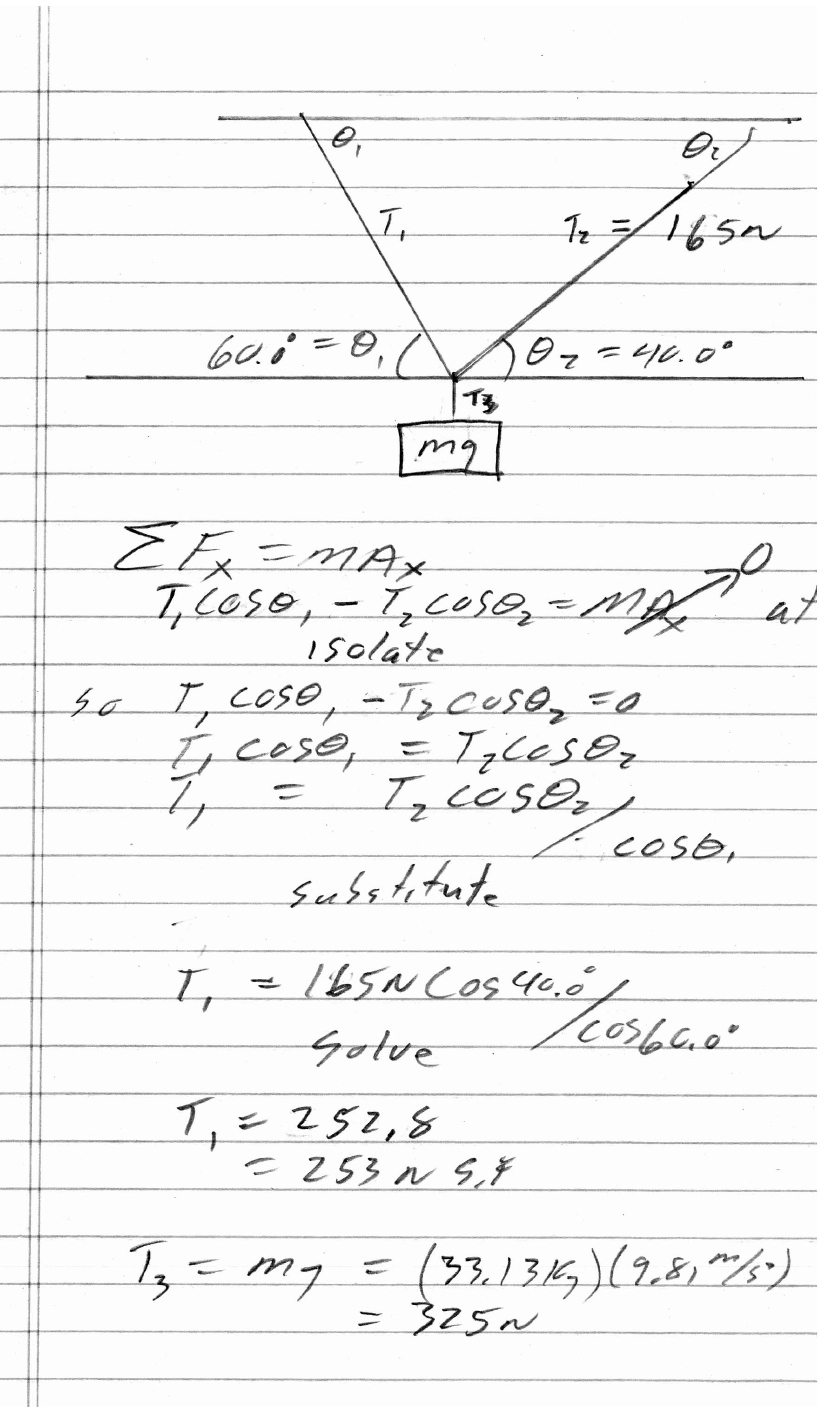 θ₁ θ₂
T₁ T₂ = 165N
60.0° = θ₁ θ₂ = 40.0°
T₃
mg
ΣFₓ = mAₓ
T₁cosθ₁ - T₂cosθ₂ = MAₓ 0 at
isolate
so T₁ cosθ₁ - T₂cosθ₂ = 0
T₁ cosθ₁ = T₂cosθ₂
T₁ = T₂ cosθ₂ / cosθ₁
substitute
T₁ = 165N Cos40.0° / cos60.0°
solve
T₁ = 252.8
= 253N s.f
T₃ = mg = (33.13Kg)(9.81m/s²)
= 325N